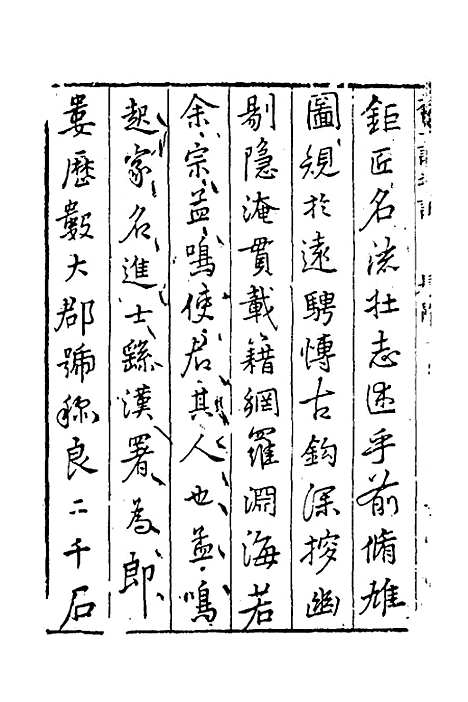 鉅匠名流壯志迅乎前脩雄
圖規於遠騁慱古鈎深控幽
剔隐淹貫載籍網羅淵海若
余宗孟鳴使君其人也孟鳴
起家名進士繇漢署為郎
婁歷轂大郡號稱良二千石